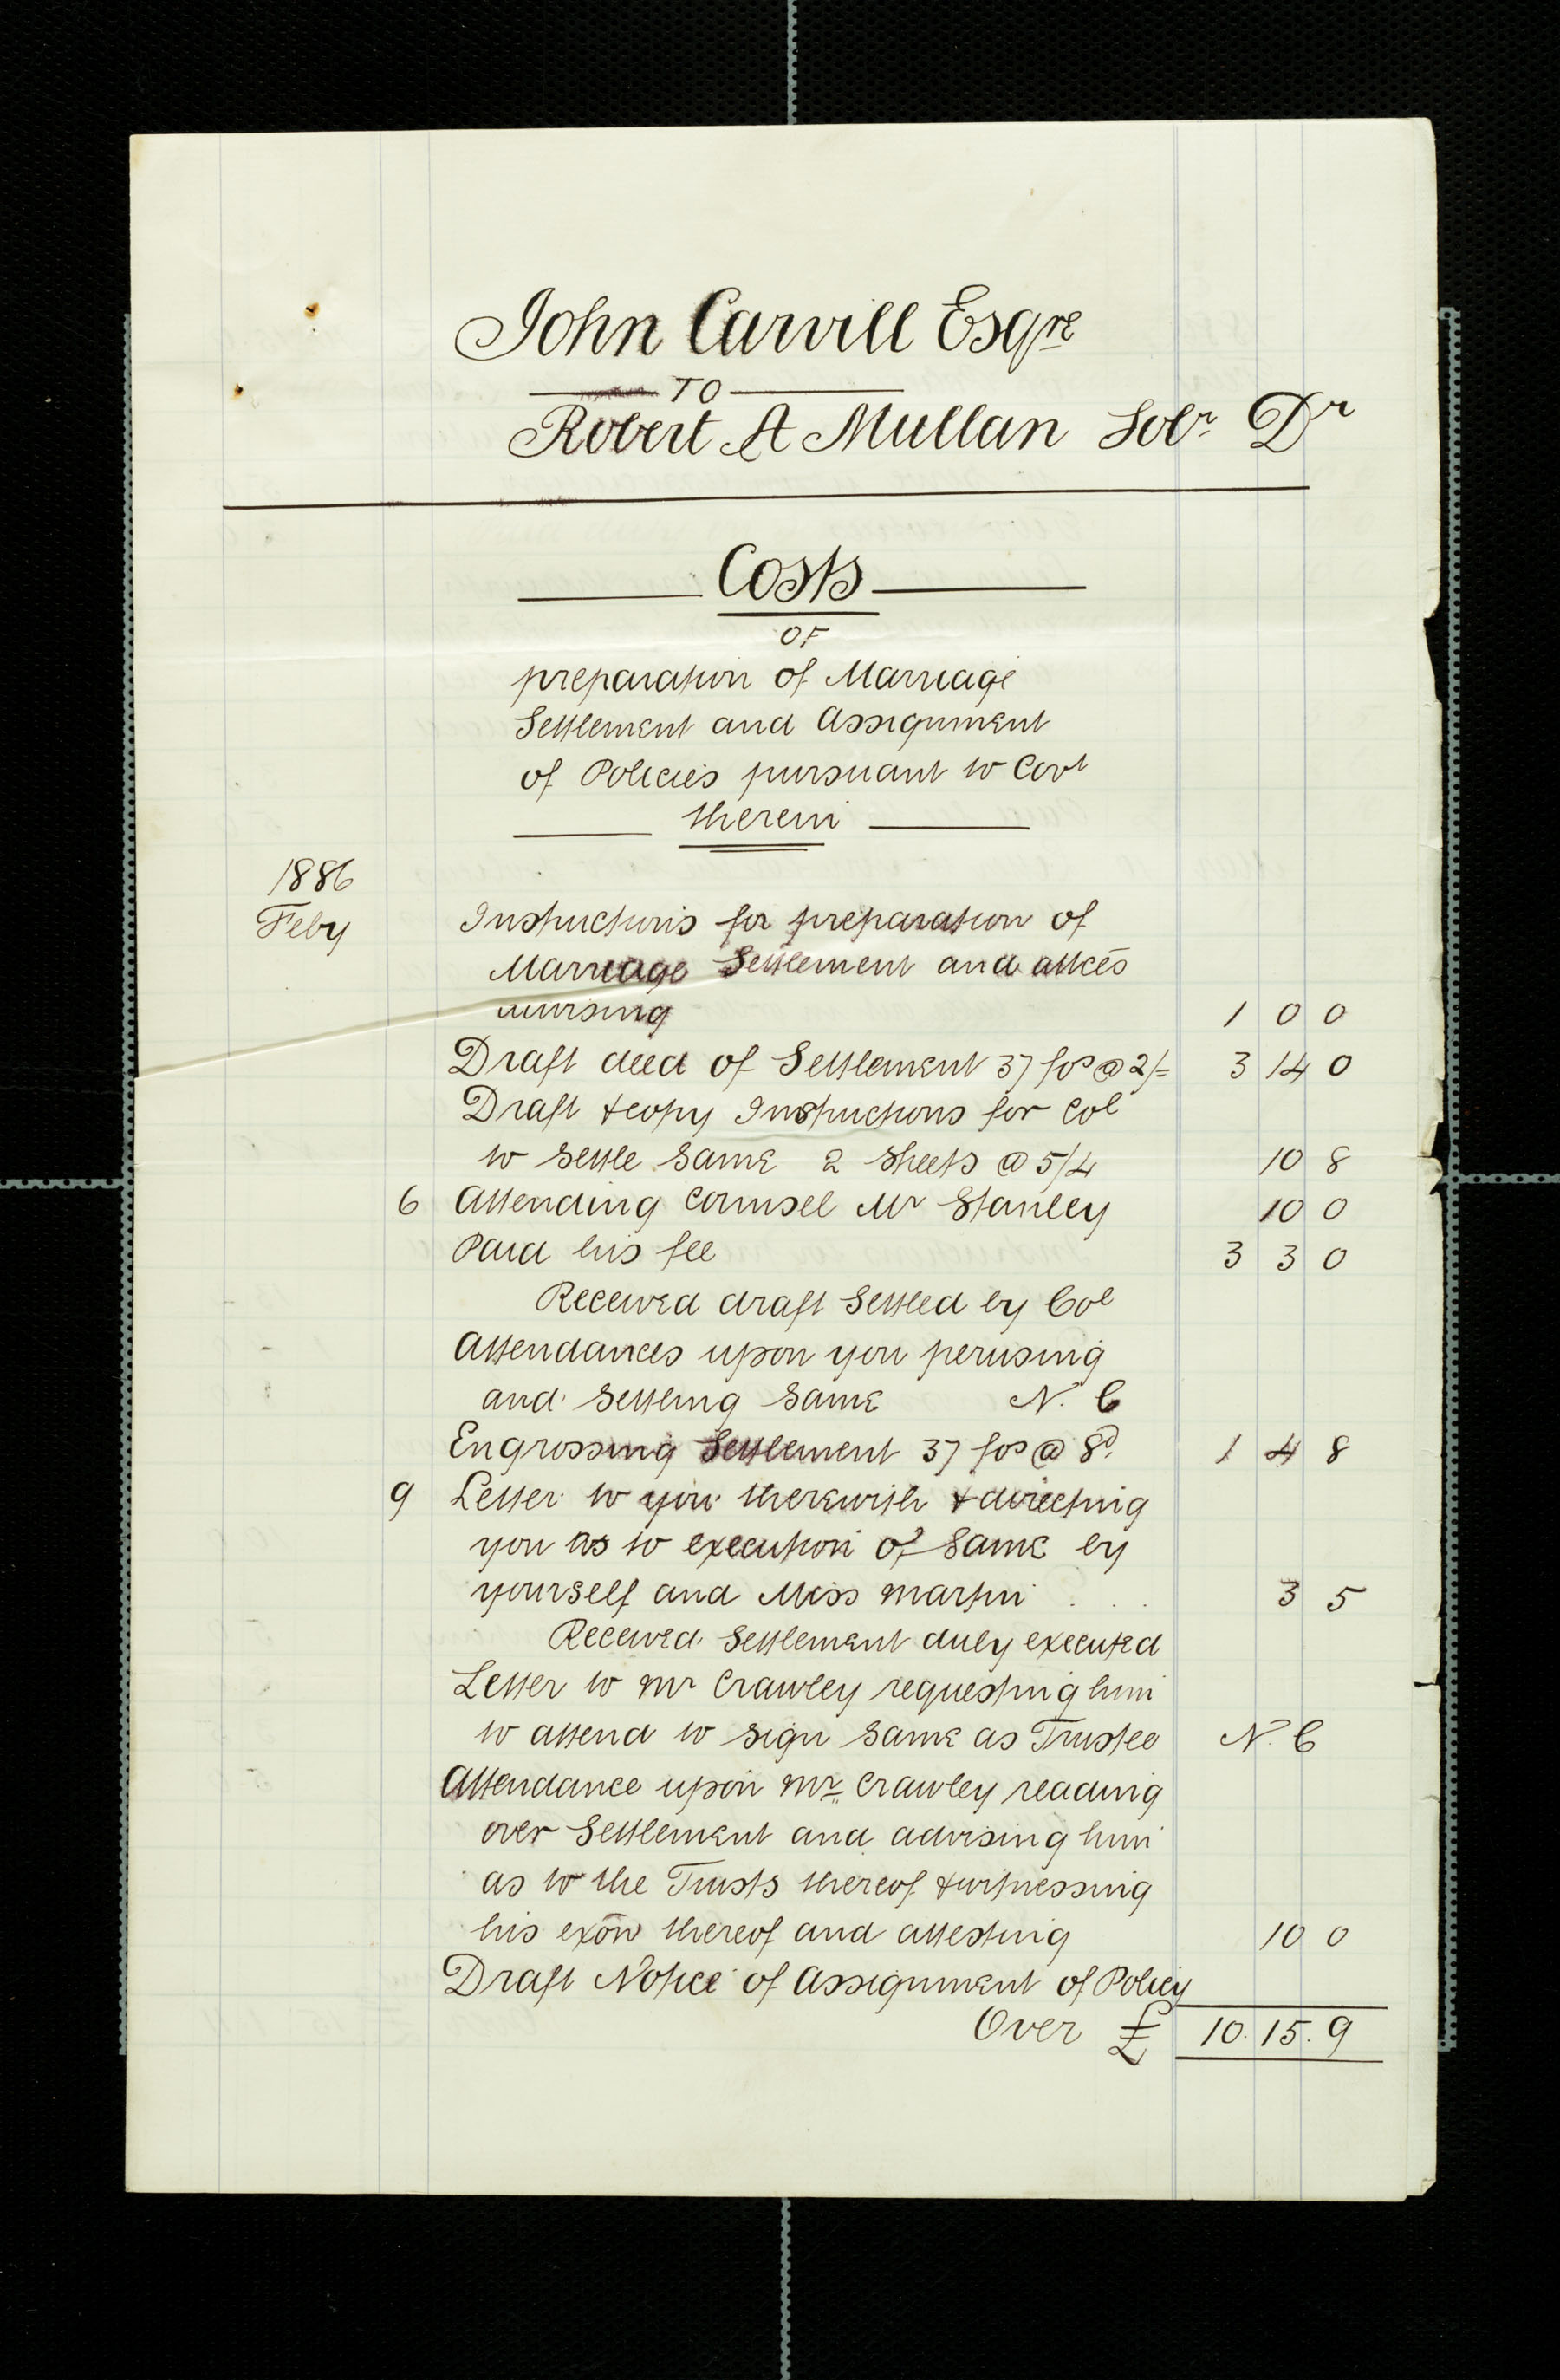 John Carvill Esqre
TO
Robert A Mullan Solr Dr
Costs
OF
preparation of Marriage
Settlement and Assignment
of Policies pursuant to Covt
therein
1886
Feby Instructions for preparation of
Marriage Settlement and attces
advising 1 0 0
Draft deed of Settlement 37 fos @ 2/= 3 14 0
Draft & copy Instructions for Col
to settle same 2 sheets @ 5/4 10 8
6 Attending Counsel Mr Stanley 10 0
Paid his fee 3 3 0
Received draft settled by Col
Attendances upon you perusing
and settling same N. C
Engrossing Settlement 37 fos @ 8d. 1 4 8
9 Letter to you therewith & directing
you as to execution of same by
yourself and Miss Martin . . . 3 5
Received Settlement duly executed
Letter to Mr Crawley requesting him
to attend to sign same as Trustee N. C
Attendance upon Mr Crawley reading
over Settlement and advising him
as to the Trusts thereof & witnessing
his exōn thereof and attesting 10 0
Draft Notice of Assignment of Policy
Over £ 10. 15. 9